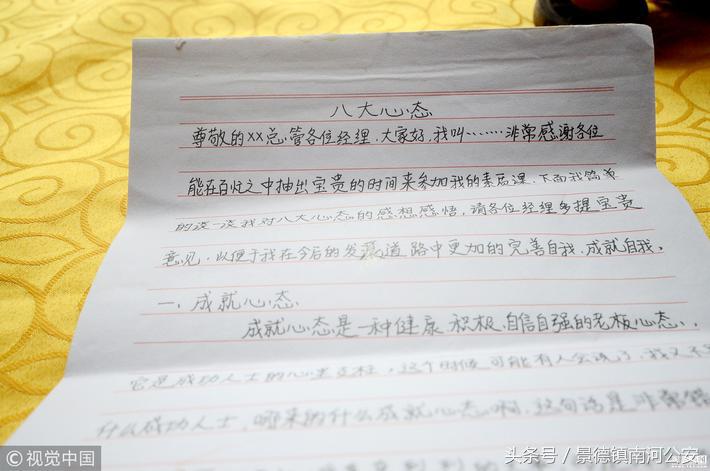 八大心态
尊敬的XX总管各位经理.大家好,我叫……非常感谢各位
能在百忙之中抽出宝贵的时间来参加我的素质课.下面我简单
的谈一谈我对八大心态的感想感悟,请各位经理多提宝贵
意见,以便于我在今后的发展道路中更加的完善自我.成就自我。
一.成就心态
成就心态是一种健康.积极.自信自强的老板心态.,
它是成功人士的心里支柱,这个时候可能有人会说了,我又不
什么成功人士,哪来的什么成就心态啊,这句话是非常错
视觉中国
头条号/景德镇南河公安